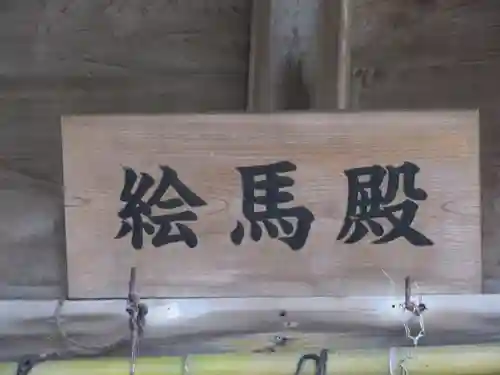 絵馬殿